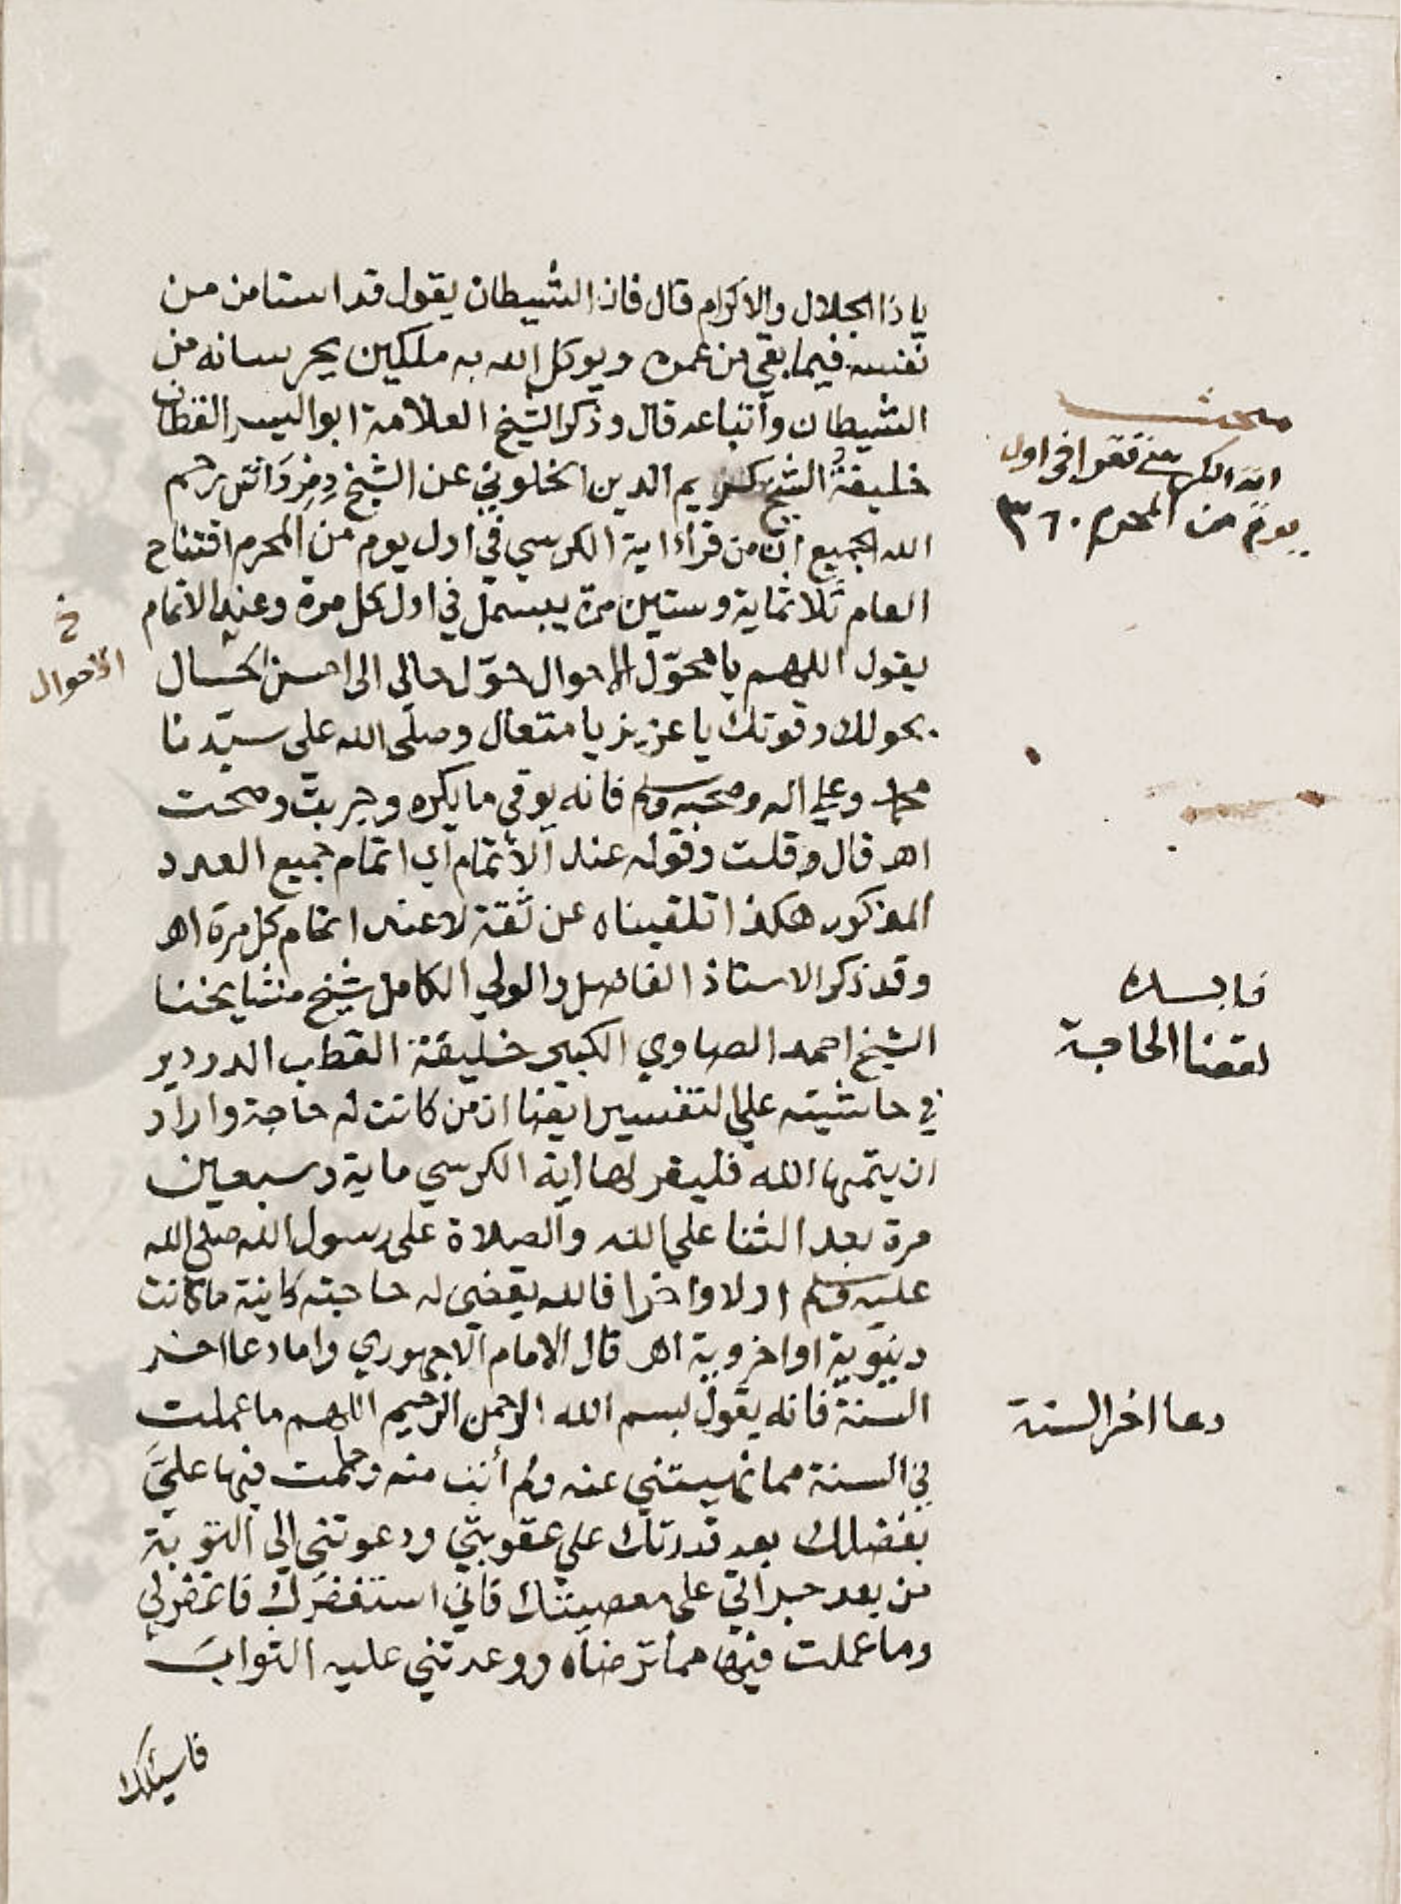 ياذا الجلال والاكرام قال فان الشيطان يقول قد استامن من
نفسه فيما بقي من عمره ويوكل الله به ملكين يحرسانه من
الشيطان وأتباعه قال وذكر الشيخ العلامة ابو اليسر القطان
خليفة الشيخ كريم الدين الخلوتي عن الشيخ دمرداش رحم
الله الجميع ان من قرأ اية الكرسي في اول يوم من المحرم افتتاح
العام ثلاثماية وستين مرة يبسمل في اول كل مرة وعند الاتمام
يقول اللهم يا محوّل الاحوال حوّل حالي الى احسن الحال
بحولك وقوتك يا عزيز يا متعال وصلّى الله على سيّدنا
محمد وعلى اله وصحبه وسلم فانه يوقى ما يكره وجربت وصحت
اهـ قال وقلت وقوله عند الاتمام أي اتمام جميع العدد
المذكور هكذا تلقيناه عن ثقة لا عند اتمام كل مرة اهـ
وقد ذكر الاستاذ الفاضل والولي الكامل شيخ مشايخنا
الشيخ احمد الصاوي الكبير خليفة القطب الدردير
في حاشيته على التفسير ايضا ان من كانت له حاجة واراد
ان يتمها الله فليقر لها اية الكرسي ماية وسبعين
مرة بعد الثنا على الله والصلاة على رسول الله صلى الله
عليه وسلم اولا واخرا فالله يقضي له حاجته كاينة ما كانت
دنيوية او اخروية اهـ قال الامام الاجهوري واما دعا اخر
السنة فانه يقول بسم الله الرحمن الرحيم اللهم ما عملت
في السنة مما نهيتني عنه ولم أتب منه وحلمت فيها عليَّ
بفضلك بعد قدرتك على عقوبتي ودعوتني الى التوبة
من بعد جراتي على معصيتك فاني استغفرك فاغفر لي
وما عملت فيها مما ترضاه ووعدتني عليه الثوابَ
فاسئلك
مبحث
اية الكرسي تقرا في اول
يوم من المحرم ٣٦٠
خ
الاحوال
فايده
لقضا الحاجة
دعا اخر السنة